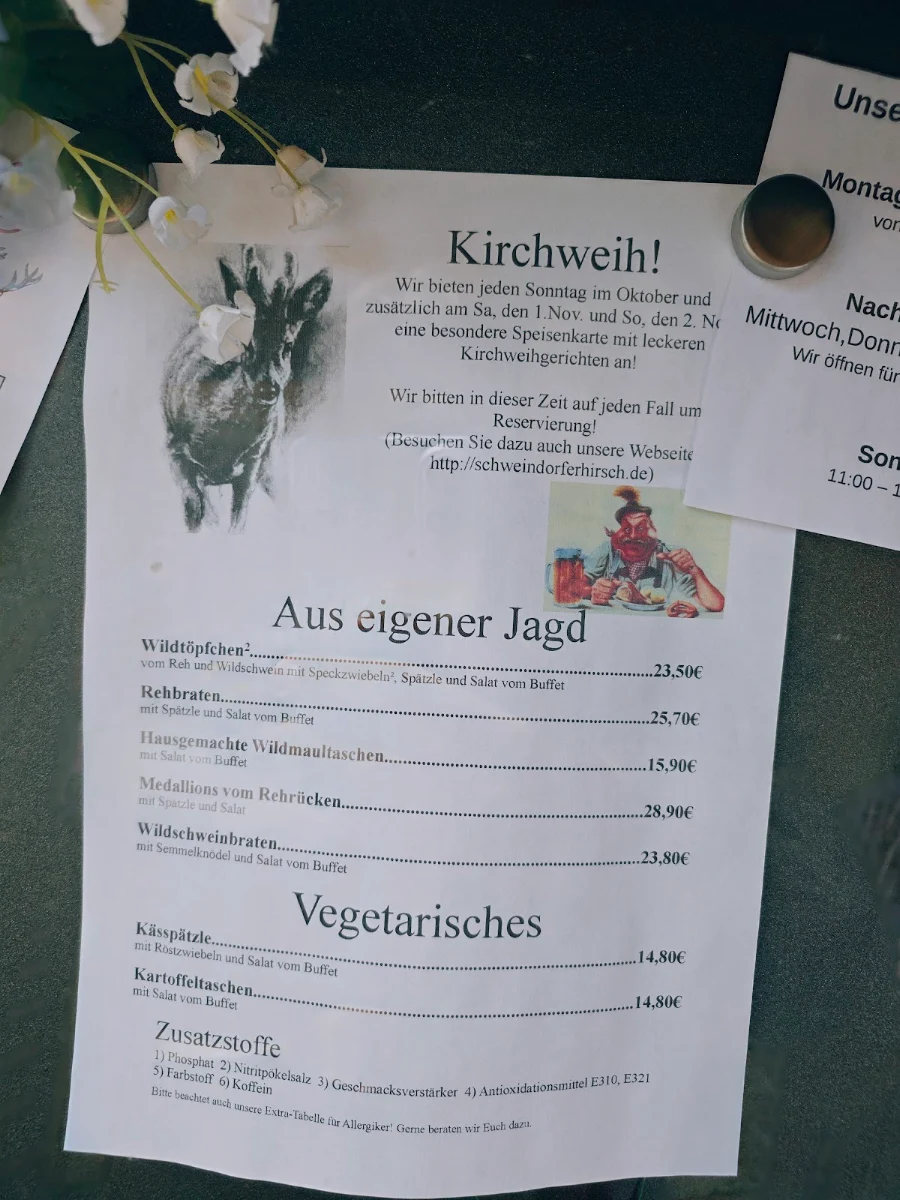 Kirchweih!
Wir bieten jeden Sonntag im Oktober und
zusätzlich am Sa, den 1.Nov. und So, den 2.
eine besondere Speisenkarte mit leckeren
Kirchweihgerichten an!
Wir bitten in dieser Zeit auf jeden Fall um
Reservierung!
(Besuchen Sie dazu auch unsere Webseite
http://schweindorferhirsch.de)
Aus eigener Jagd
Wildtöpfchen²..........23,50€
vom Reh und Wildschwein mit Speckzwiebeln², Spätzle und Salat vom Buffet
Rehbraten..........25,70€
mit Spätzle und Salat vom Buffet
Hausgemachte Wildmaultaschen..........15,90€
mit Salat vom Buffet
Medallions vom Rehrücken..........28,90€
mit Spätzle und Salat
Wildschweinbraten..........23,80€
mit Semmelknödel und Salat vom Buffet
Vegetarisches
Kässpätzle..........14,80€
mit Röstzwiebeln und Salat vom Buffet
Kartoffeltaschen..........14,80€
mit Salat vom Buffet
Zusatzstoffe
1) Phosphat 2) Nitritpökelsalz 3) Geschmacksverstärker 4) Antioxidationsmittel E310, E321
5) Farbstoff 6) Koffein
Bitte beachtet auch unsere Extra-Tabelle für Allergiker! Gerne beraten wir Euch dazu.
Unse
Montag
vor
Nach
Mittwoch,Donn
Wir öffnen für
Son
11:00 – 1